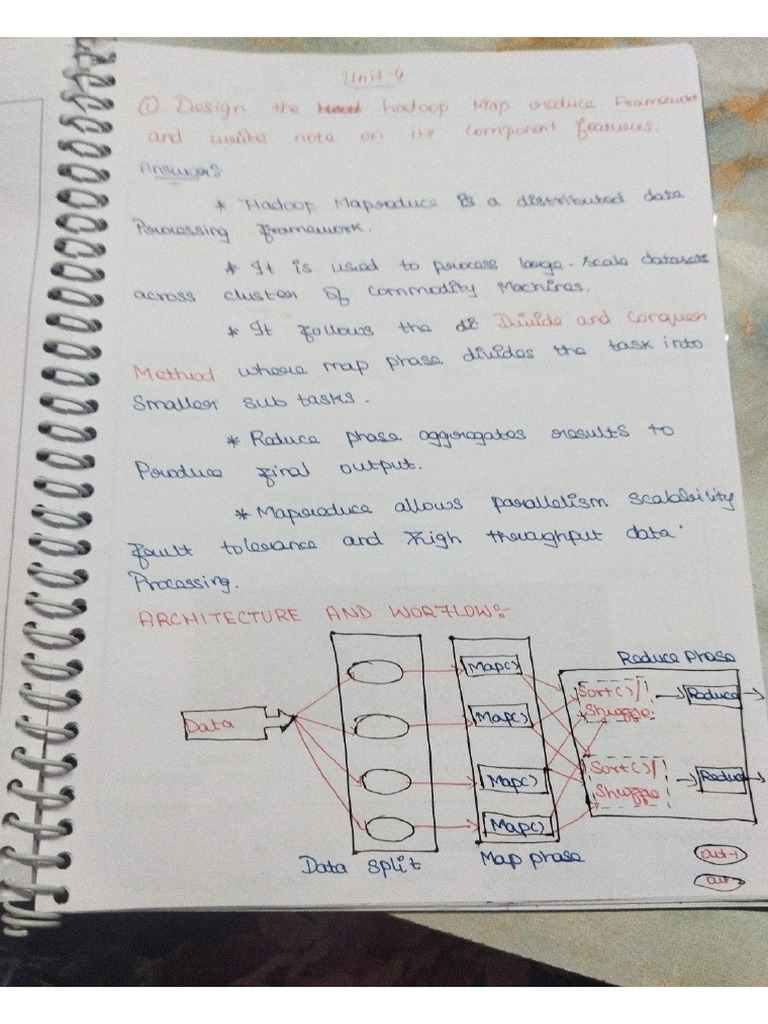 Unit-4
① Design the hadoop Map reduce Framework
and write note on its component features.
Answer:
* Hadoop Mapreduce is a distributed data
Processing framework.
* It is used to process large-scale datasets
across cluster of commodity Machines.
* It follows the di Divide and Conquer
Method where map phase divides the task into
Smaller sub tasks.
* Reduce phase aggregates results to
Produce final output.
* Mapreduce allows parallelism scalability
fault tolerance and high throughput data
Processing.
ARCHITECTURE AND WORFLOW:-
Reduce phase
Data
Map()
Map()
Map()
Map()
Sort()/
Shuffle
Reduce
Sort()/
Shuffle
Reduce
Data split
Map phase
out-1